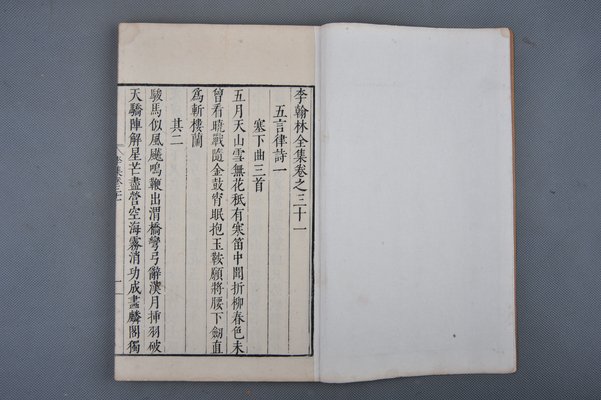 李翰林全集卷之三十一
五言律詩一
塞下曲三首
五月天山雪無花秖有寒笛中聞折柳春色未
曾看曉戰隨金鼓宵眠抱玉鞍願將腰下劒直
為斬樓蘭
其二
駿馬似風飇鳴鞭出渭橋彎弓辭漢月挿羽破
天驕陣解星芒盡營空海霧消功成畫麟閣獨